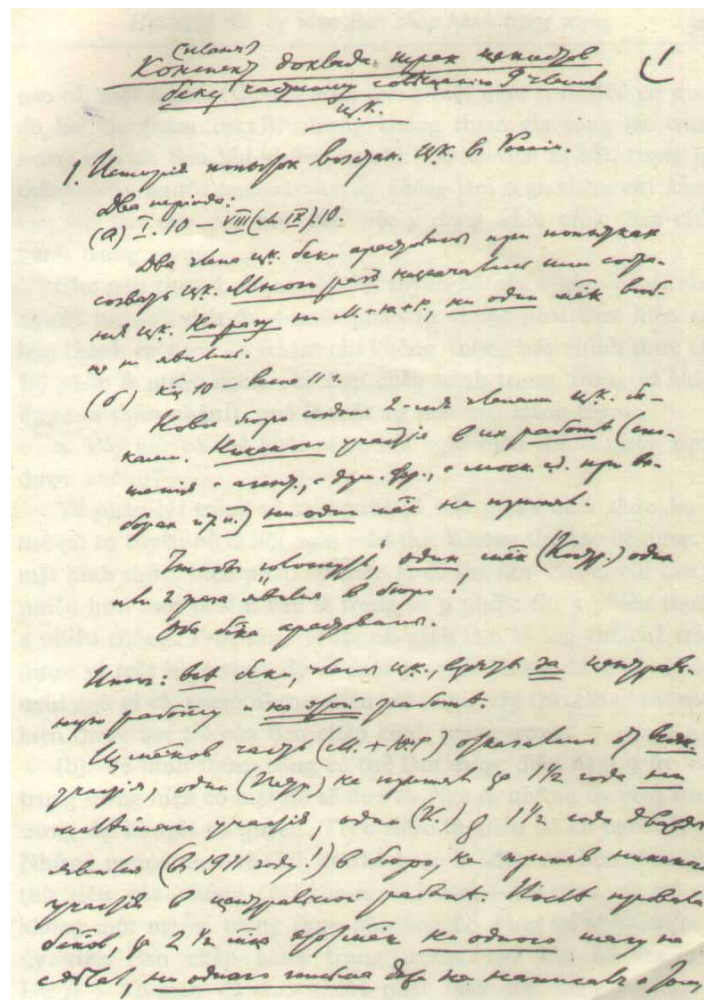 (План?)
Конспект доклада трех цекистов
беку частному совещанию 9 членов
ЦК.
1 История попыток возстан. ЦК. в России.
Два периода:
(а) I. 10 – VIII (или IX). 10.
Два члена цк. беки арестованы при попытках
созвать цк. Много раз назначались ими собра-
ния цк. Ни разу ни М.+Ю.+Р., ни один мек вооб-
ще не явились.
(б) кц 10 – весна 11.
Новое бюро создано 2-мя членами цк. бе-
ками. Никакого участия в их работе (сно-
шения с агент., с дум. фр., с моск. при вы-
борах и т. п.) ни один мек не принял.
один мек (Костр.) один
или 2 раза являлся в бюро!
Оба бека арестованы.
Итог: все беки, члены цк., взяты за централь-
ную работу и на этой работе.
Из меков часть (М. + Ю. + Р) отказались от всяк.
участия, один (Петр.) не принял за 1½ года ни
малейшего участия, один (К.) за 1½ года дважды
явился (в 1911 году!) в бюро, не приняв никакого
участия в центральной работе. После провала
беков, за 2½ м-ца мек ни одного шагу не
сделал, ни одного письма даже не написал о том,